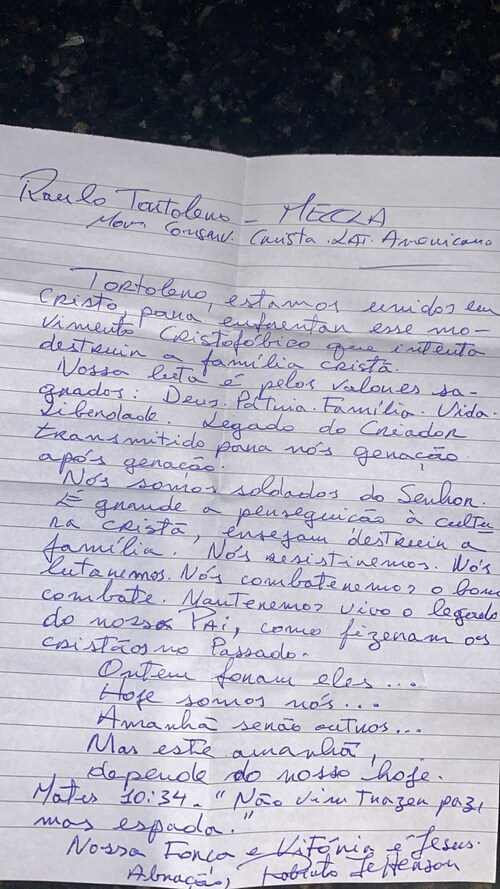 Raulo Tortoleno - MECLA
Mov. Conserv. Cavista. LAT. Americano
Tortoleno, estamos unidos em
Cristo, para enfrentar esse mo-
vimento Cristofóbico que intenta
destruir a família cristã.
Nossa luta é pelos valores sa-
grados: Deus. Pátria. Família. Vida.
Liberdade. Legado do Criador
transmitido para nós geração
após geração.
Nós somos soldados do Senhor.
É grande a perseguição à cultu
ra cristã, ensejam destruir a
família. Nós resistiremos. Nós
lutaremos. Nós combateremos o bom
combate. Manteremos vivo o legado
do nosso Pai, como fizeram os
cristãos no Passado.
Ontem foram eles...
Hoje somos nós...
Amanhã serão outros...
Mas este amanhã,
depende do nosso hoje.
Mateus 10:34. "Não vim trazer paz,
mas espada."
Nossa Força e Vitória é Jesus.
Abração, Roberto Jefferson